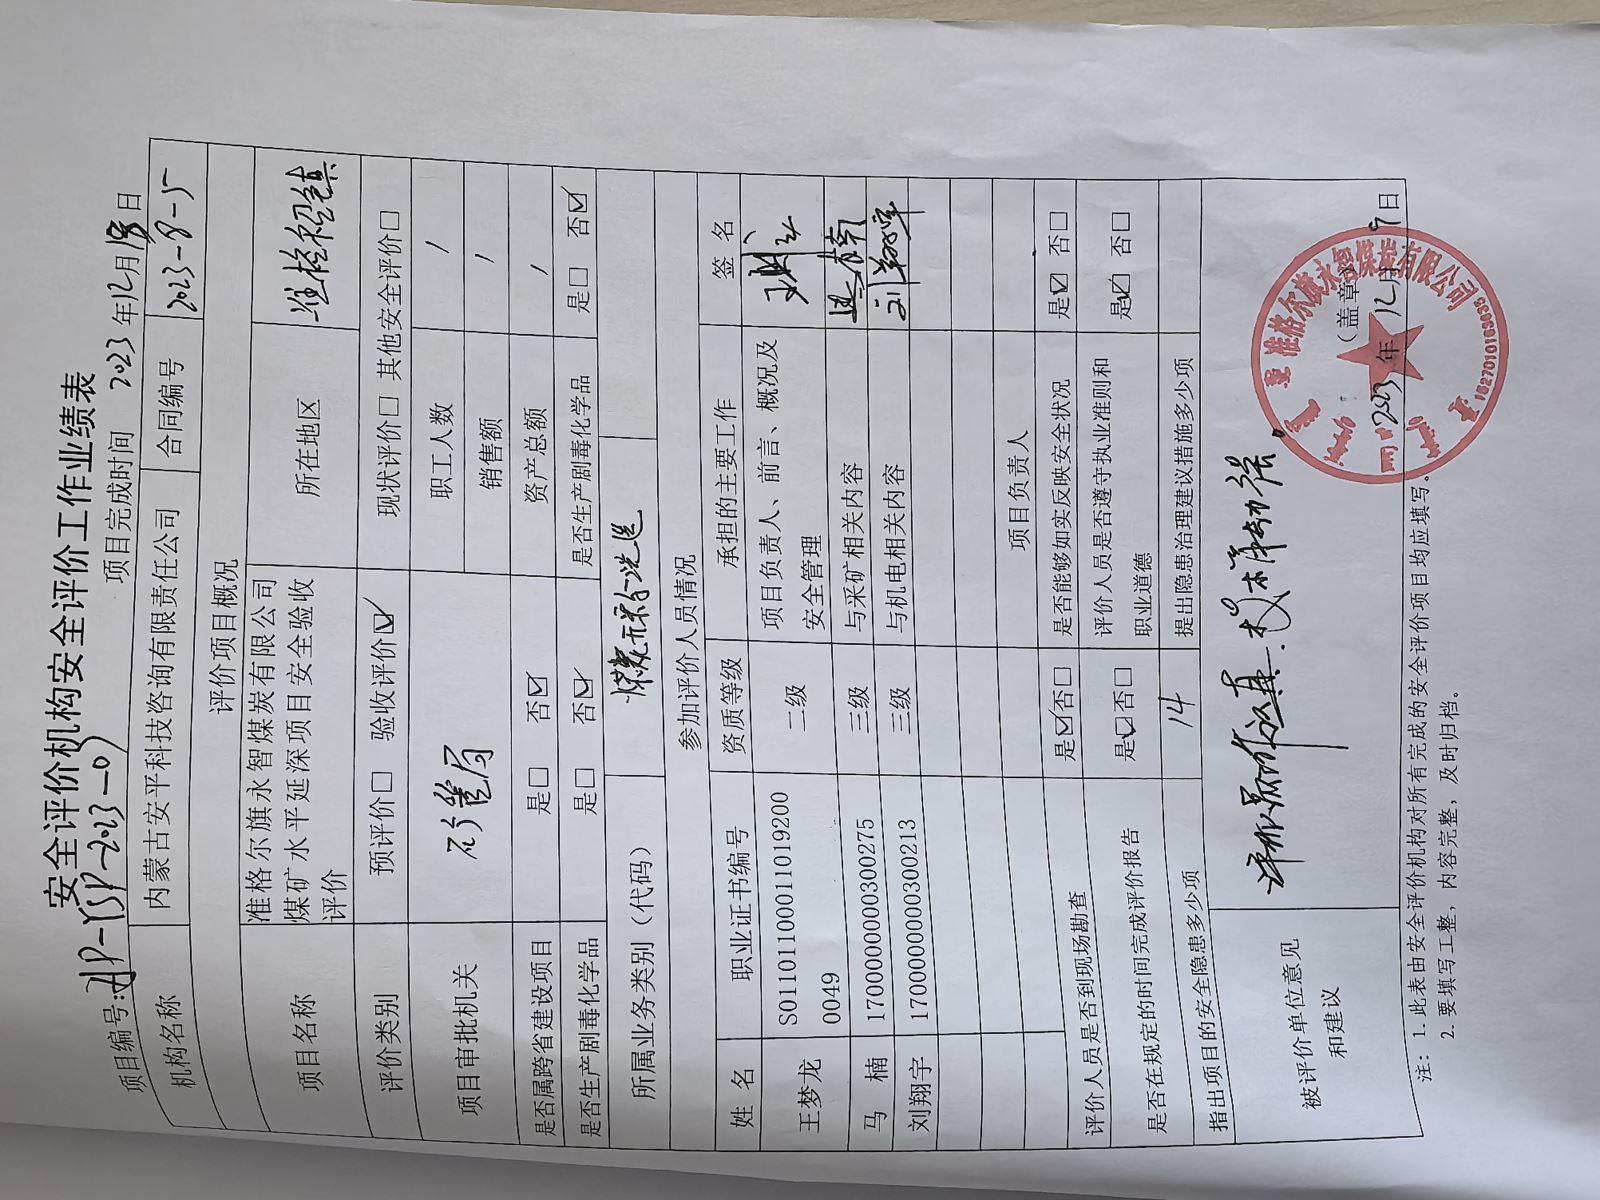 安全评价机构安全评价工作业绩表
项目编号:AP-YSP-2023-09 项目完成时间 2023年12月18日
机构名称 内蒙古安平科技咨询有限责任公司 合同编号 2023-8-15
评价项目概况
项目名称 准格尔旗永智煤炭有限公司 所在地区 准格尔召镇
煤矿水平延深项目安全验收
评价
评价类别 预评价□ 验收评价☑ 现状评价□ 其他安全评价□
项目审批机关 矿管局 职工人数 /
销售额 /
资产总额 /
是否属跨省建设项目 是□ 否☑ 是否生产剧毒化学品 是□ 否☑
是否生产剧毒化学品 是□ 否☑
所属业务类别（代码） 煤炭开采和洗选
参加评价人员情况
姓 名 职业证书编号 资质等级 承担的主要工作 签 名
王梦龙 S01101100011019200 二级 项目负责人、前言、概况及
0049 安全管理
马 楠 1700000000300275 三级 与采矿相关内容 马楠
刘翔宇 1700000000300213 三级 与机电相关内容 刘翔宇
项目负责人
评价人员是否到现场勘查 是☑否□ 是否能够如实反映安全状况 是☑ 否□
是否在规定的时间完成评价报告 是☑否□ 评价人员是否遵守执业准则和
职业道德 是☑ 否□
指出项目的安全隐患多少项 14 提出隐患治理建议措施多少项
被评价单位意见
和建议
评价人员工作认真.技术能力强。
准格尔旗永智煤炭有限公司
（盖章）
2023年12月19日
1527010103035
注： 1.此表由安全评价机构对所有完成的安全评价项目均应填写。
2.要填写工整，内容完整，及时归档。